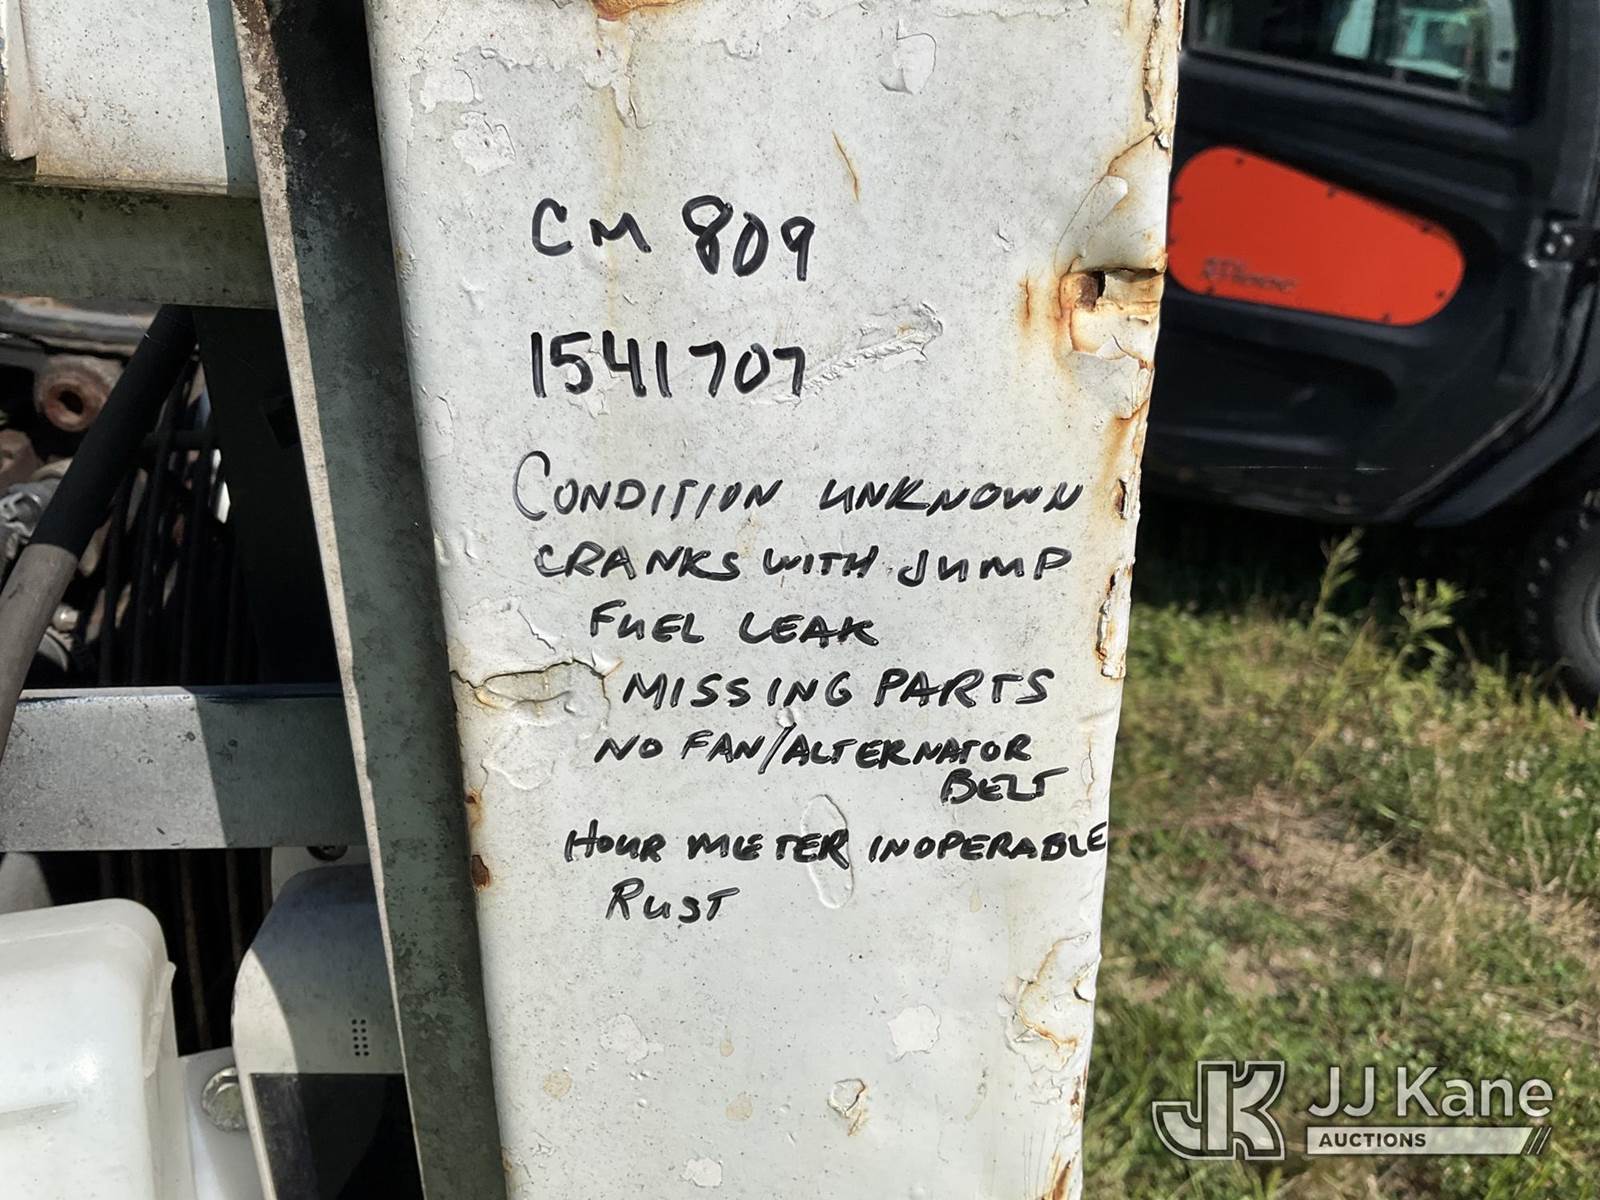 CM 809
1541707
CONDITION UNKNOWN
CRANKS WITH JUMP
FUEL LEAK
MISSING PARTS
NO FAN/ALTERNATOR
BELT
HOUR METER INOPERABLE
RUST
JJ Kane
AUCTIONS